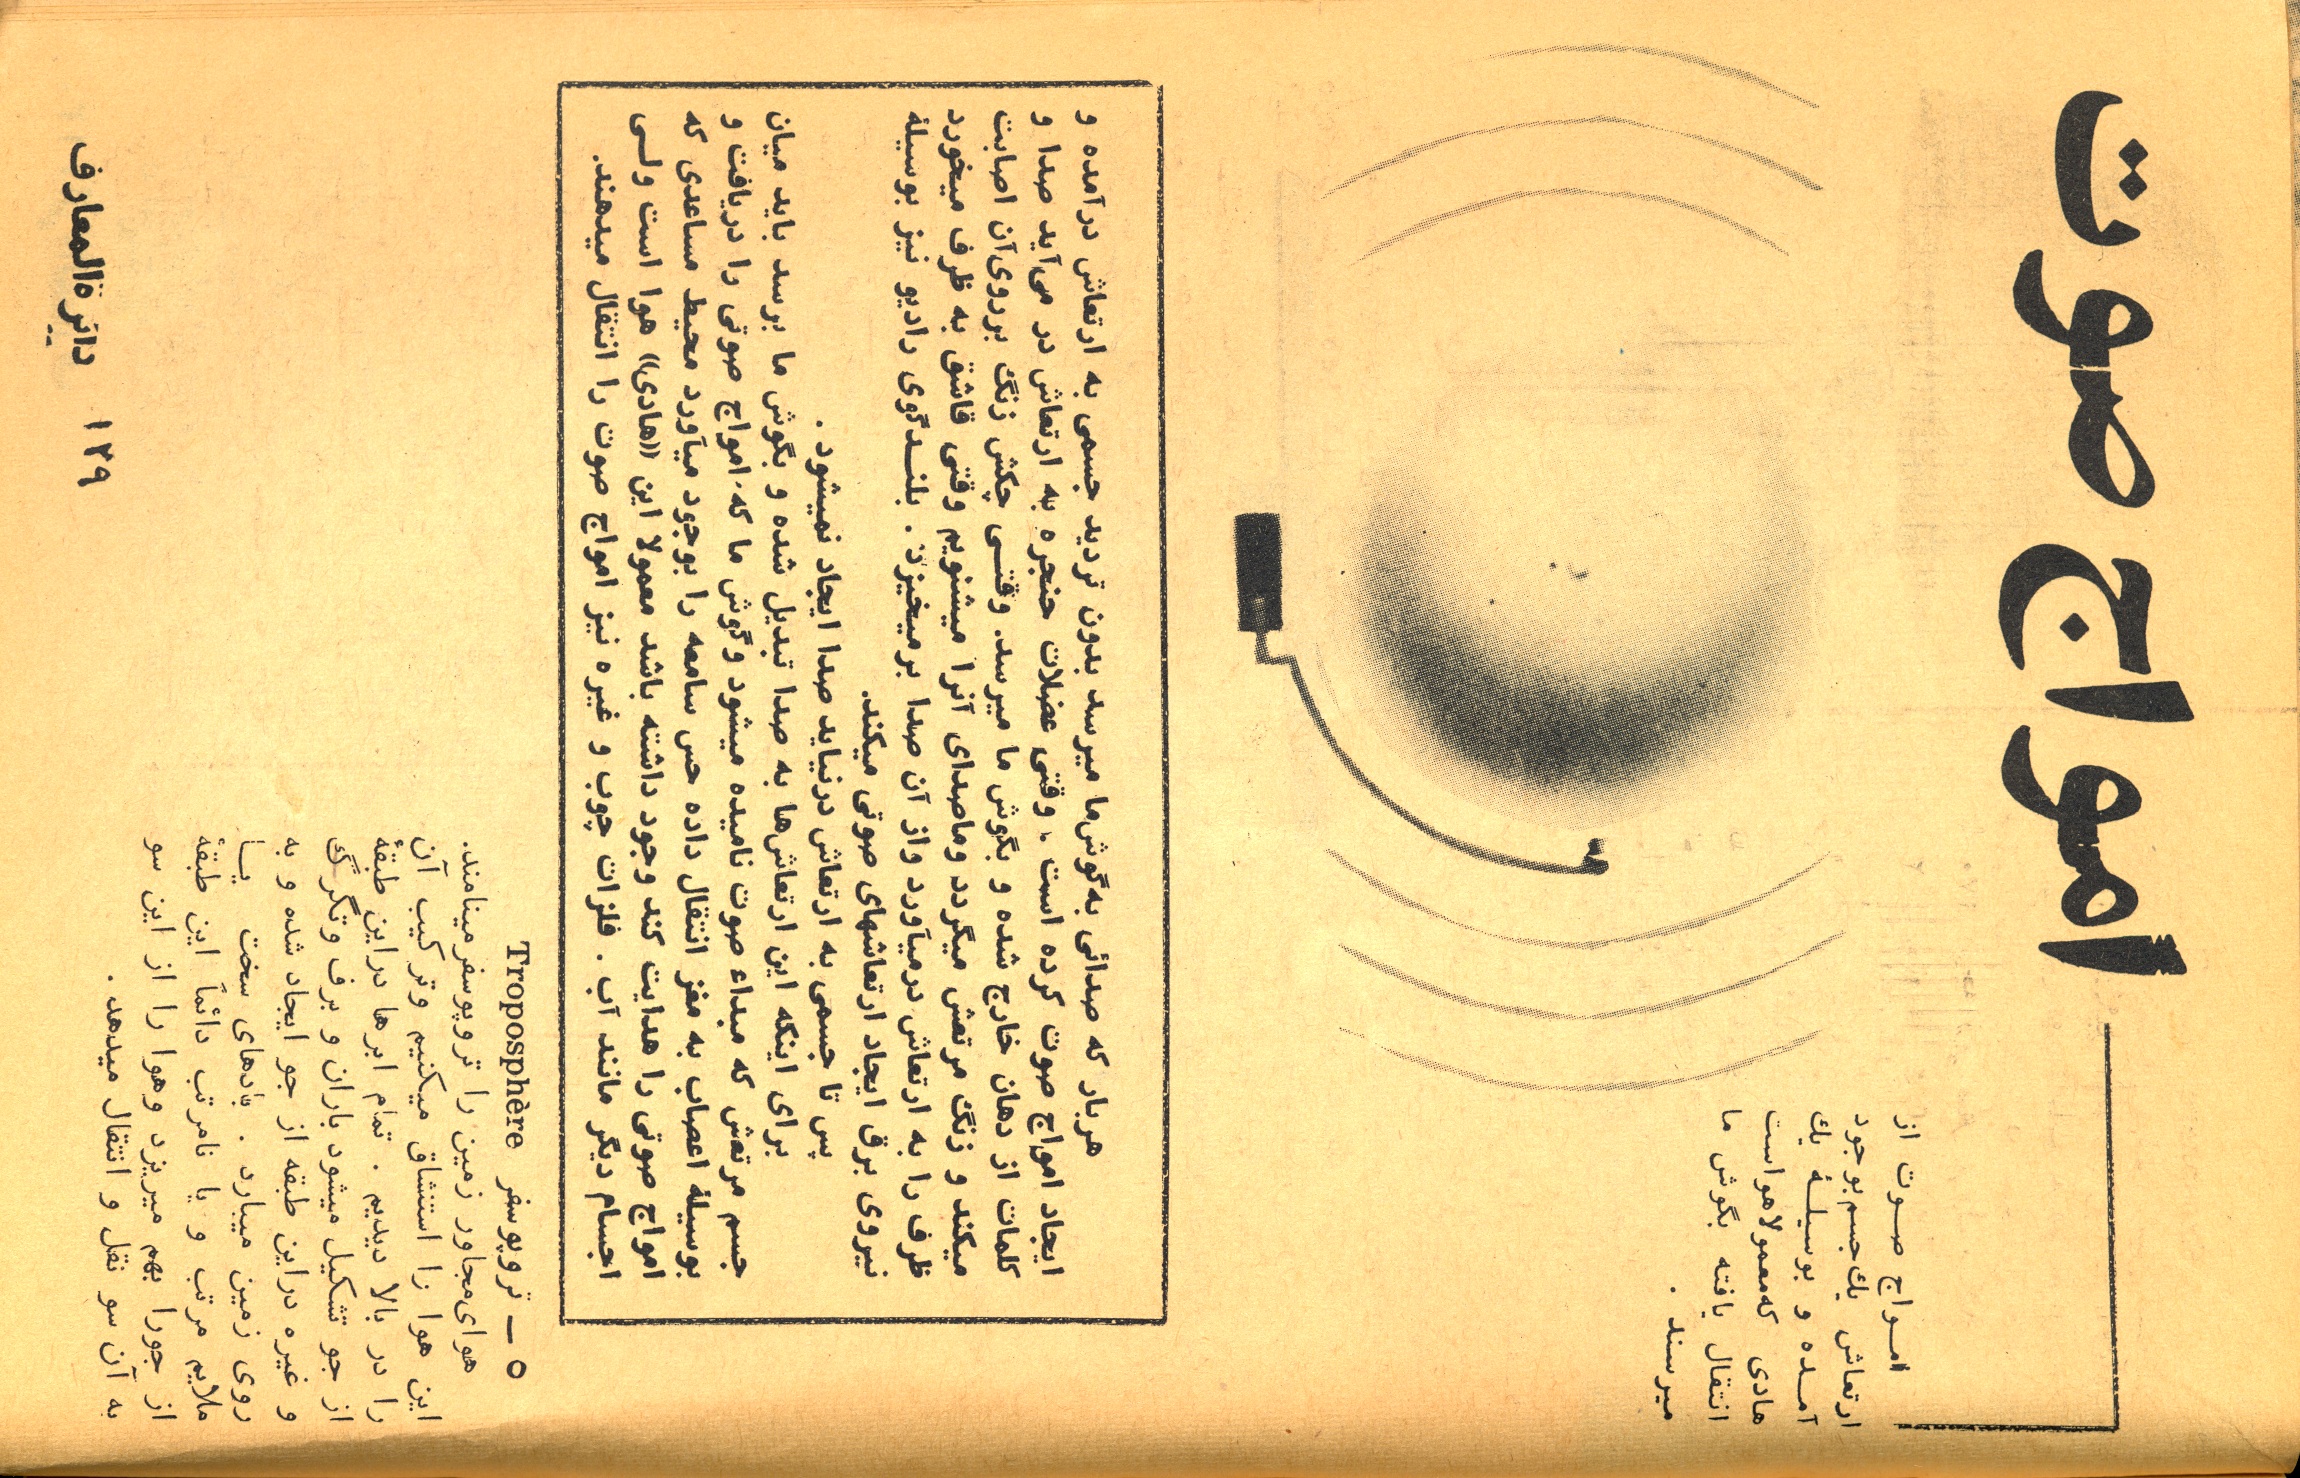 امواج صوت
امـواج صـوت از
ارتعاش یك‌جسم‌بوجود
آمـده و بوسیلـهٔ یك
هادی که‌معمولاهواست
انتقال یافته بگوش ما
میرسند .
هربار که صدائی به‌گوش‌ما میرسد بدون تردید جسمی به ارتعاش درآمده و
ایجاد امواج صوت کرده است . وقتی عضلات حنجره به ارتعاش در می‌آید صدا و
کلمات از دهان خارج شده و بگوش ما میرسد. وقتـی چکش زنگ برروی‌آن اصابت
میکند و زنگ مرتعش میگردد وماصدای آنرا میشنویم وقتی قاشق به ظرف میخورد
ظرف را به ارتعاش درمیآورد واز آن صدا برمیخیزد. بلنـدگوی رادیو نیز بوسیلهٔ
نیروی برق ایجاد ارتعاشهای صوتی میکند.
پس تا جسمی به ارتعاش درنیاید صدا ایجاد نمیشود .
برای اینکه این ارتعاش‌ها به صدا تبدیل شده و بگوش ما برسد باید میان
جسم مرتعش که مبداء صوت نامیده میشود وگوش ما که امواج صوتی را دریافت و
بوسیلهٔ اعصاب به مغز انتقال داده حس سامعه را بوجود میآورد محیط مساعدی که
امواج صوتی را هدایت کند وجود داشته باشد معمولا این «هادی» هوا است ولـی
اجسام دیگر مانند آب . فلزات چوب و غیره نیز امواج صوت را انتقال میدهند.
۵ ــ تروپوسفر Troposphère
هوای‌مجاور زمین را تروپوسفرمینامند.
این هوا را استنشاق میکنیم وترکیب آن
را در بالا دیدیم . تمام ابرها دراین طبقهٔ
از جو تشکیل میشود باران و برف وتگرگ
و غیره دراین طبقه از جو ایجاد شده و به
روی زمین میبارد . بادهای سخت یـا
ملایم مرتب و یا نامرتب دائماً این طبقهٔ
از جورا بهم میریزد وهوا را از این سو
به آن سو نقل و انتقال میدهد .
۱۳۹ دائرةالمعارف